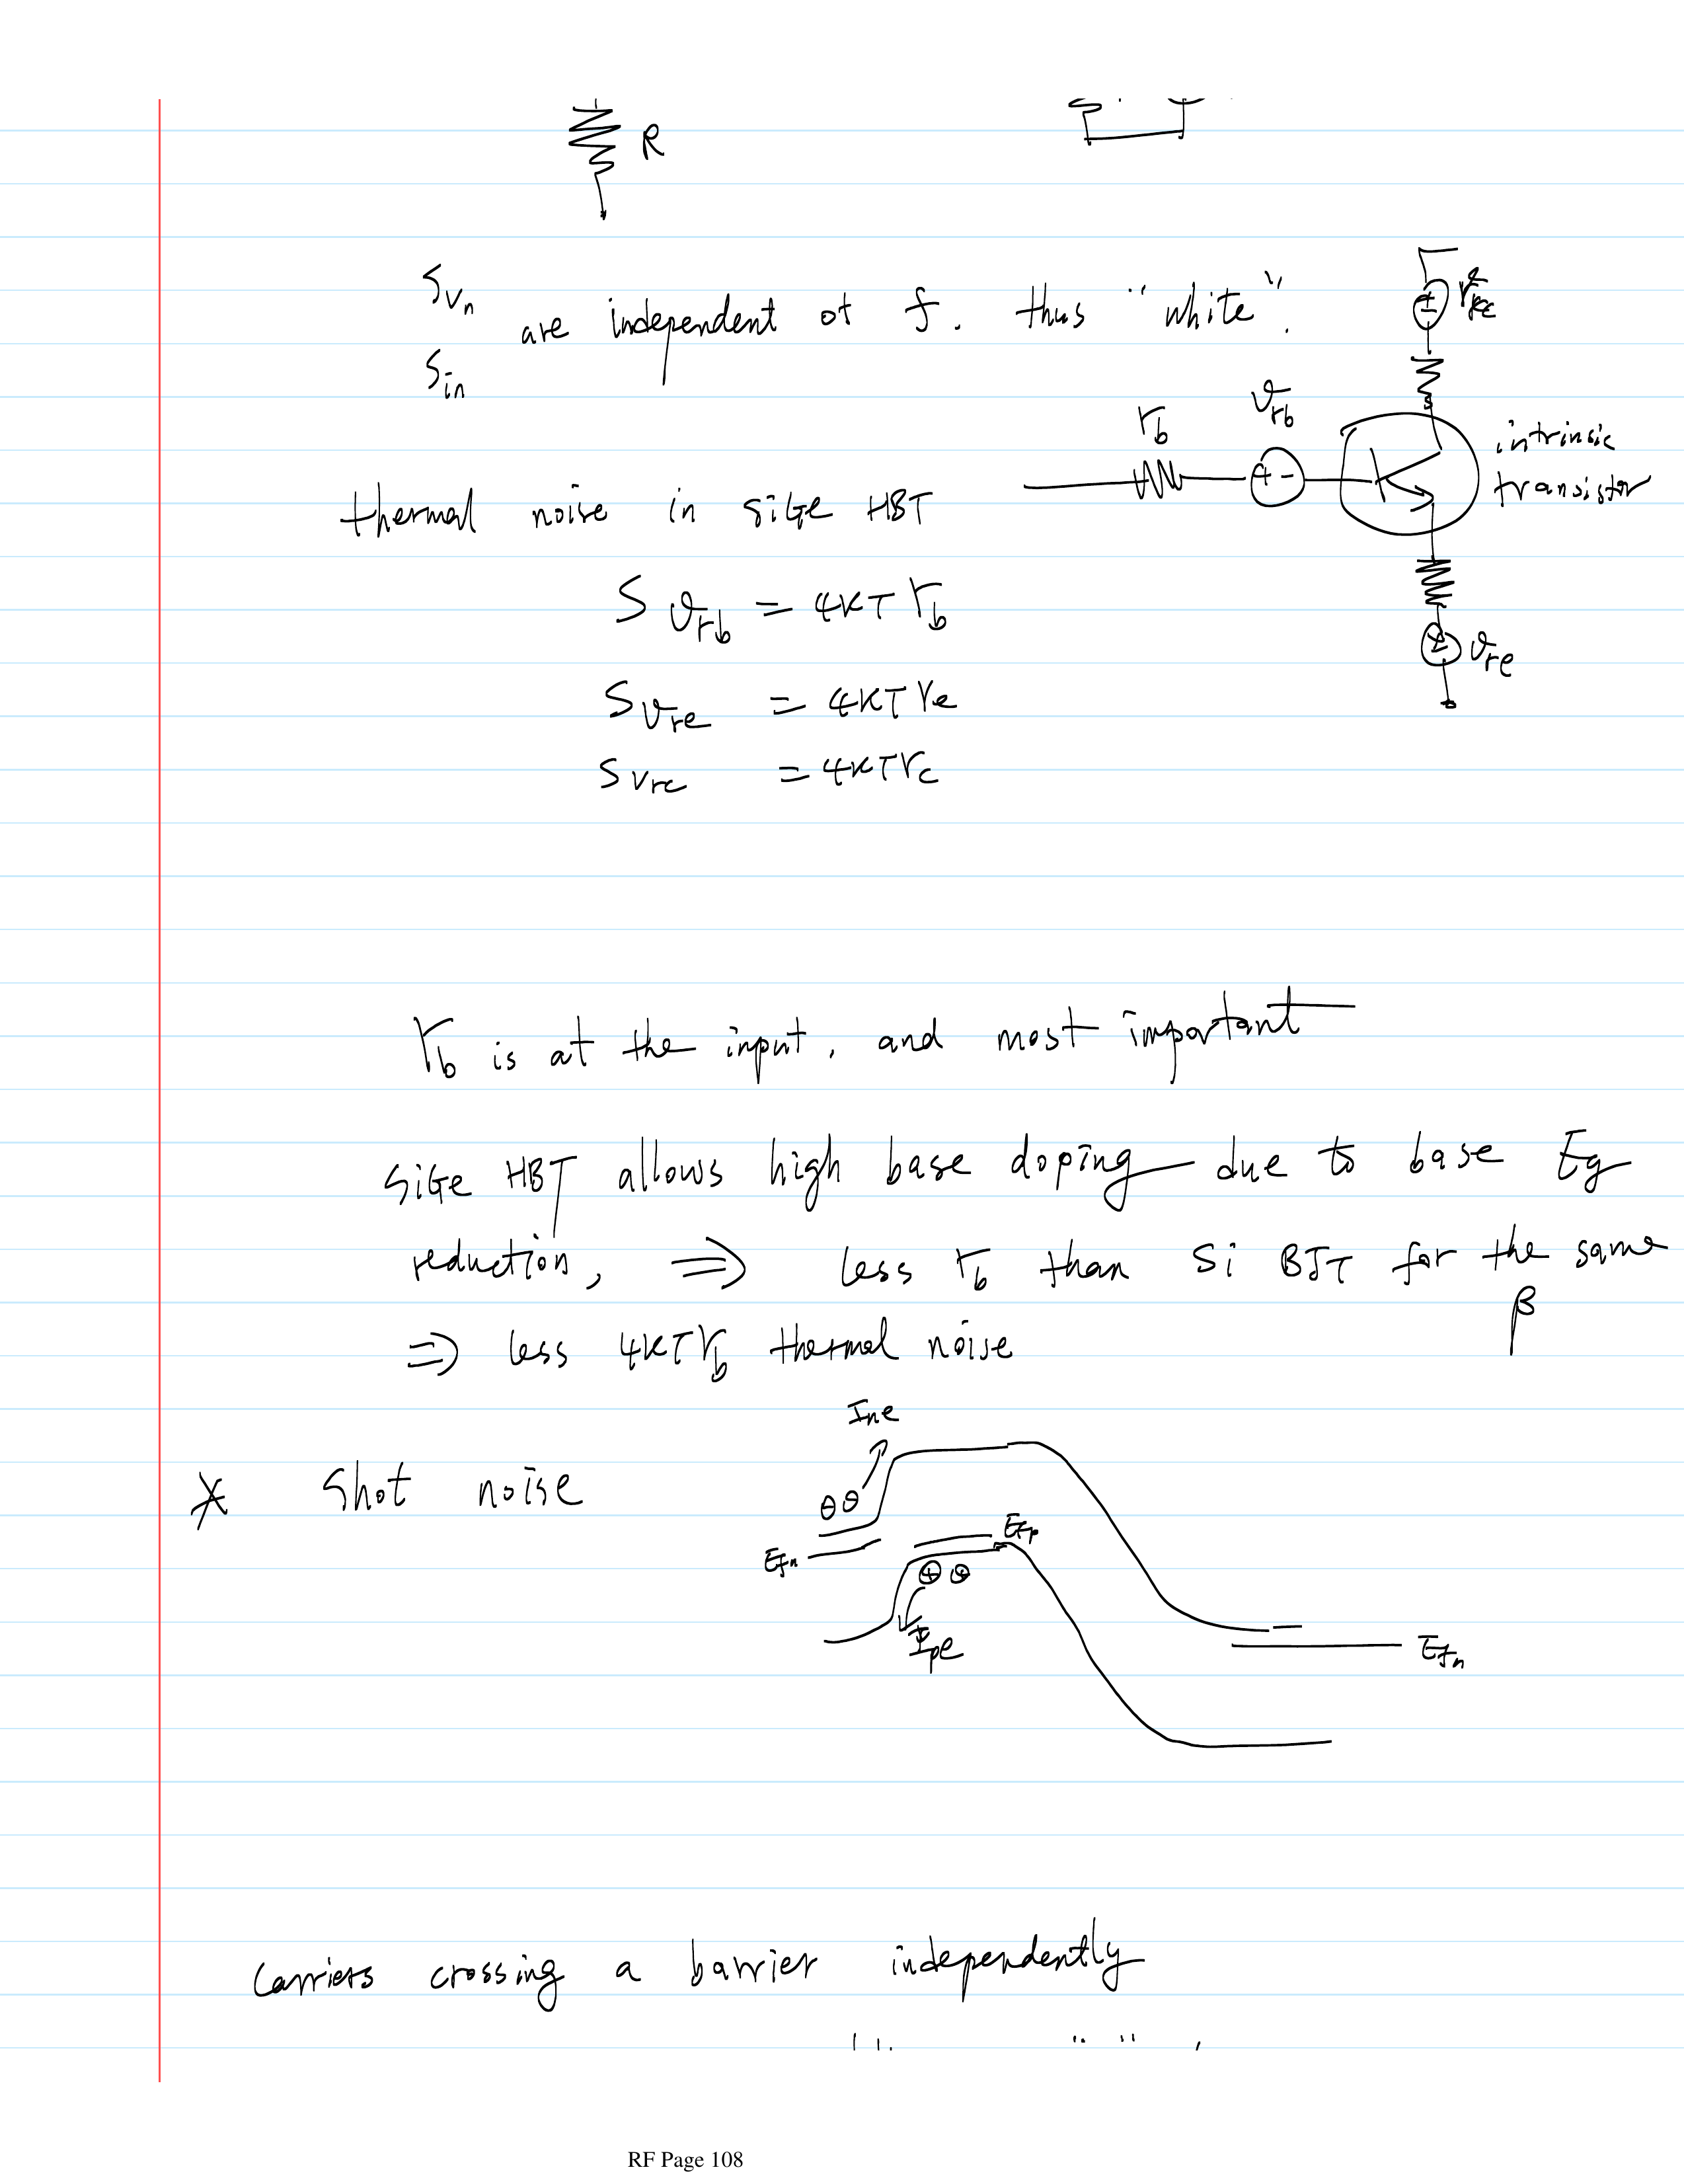 R
S_Vn
are independent of f. thus "white".
S_in
v_rb
r_b
intrinsic
transistor
thermal noise in SiGe HBT
S v_rb = 4KT r_b
v_re
S v_re = 4KT r_e
S v_rc = 4KT r_c
r_b is at the input, and most important
SiGe HBT allows high base doping due to base Eg
reduction, ⇒ less r_b than Si BJT for the same
β
⇒ less 4KT r_b thermal noise
I_ne
* Shot noise
E_fp
E_fn
I_pe
E_fn
Carriers crossing a barrier independently
RF Page 108